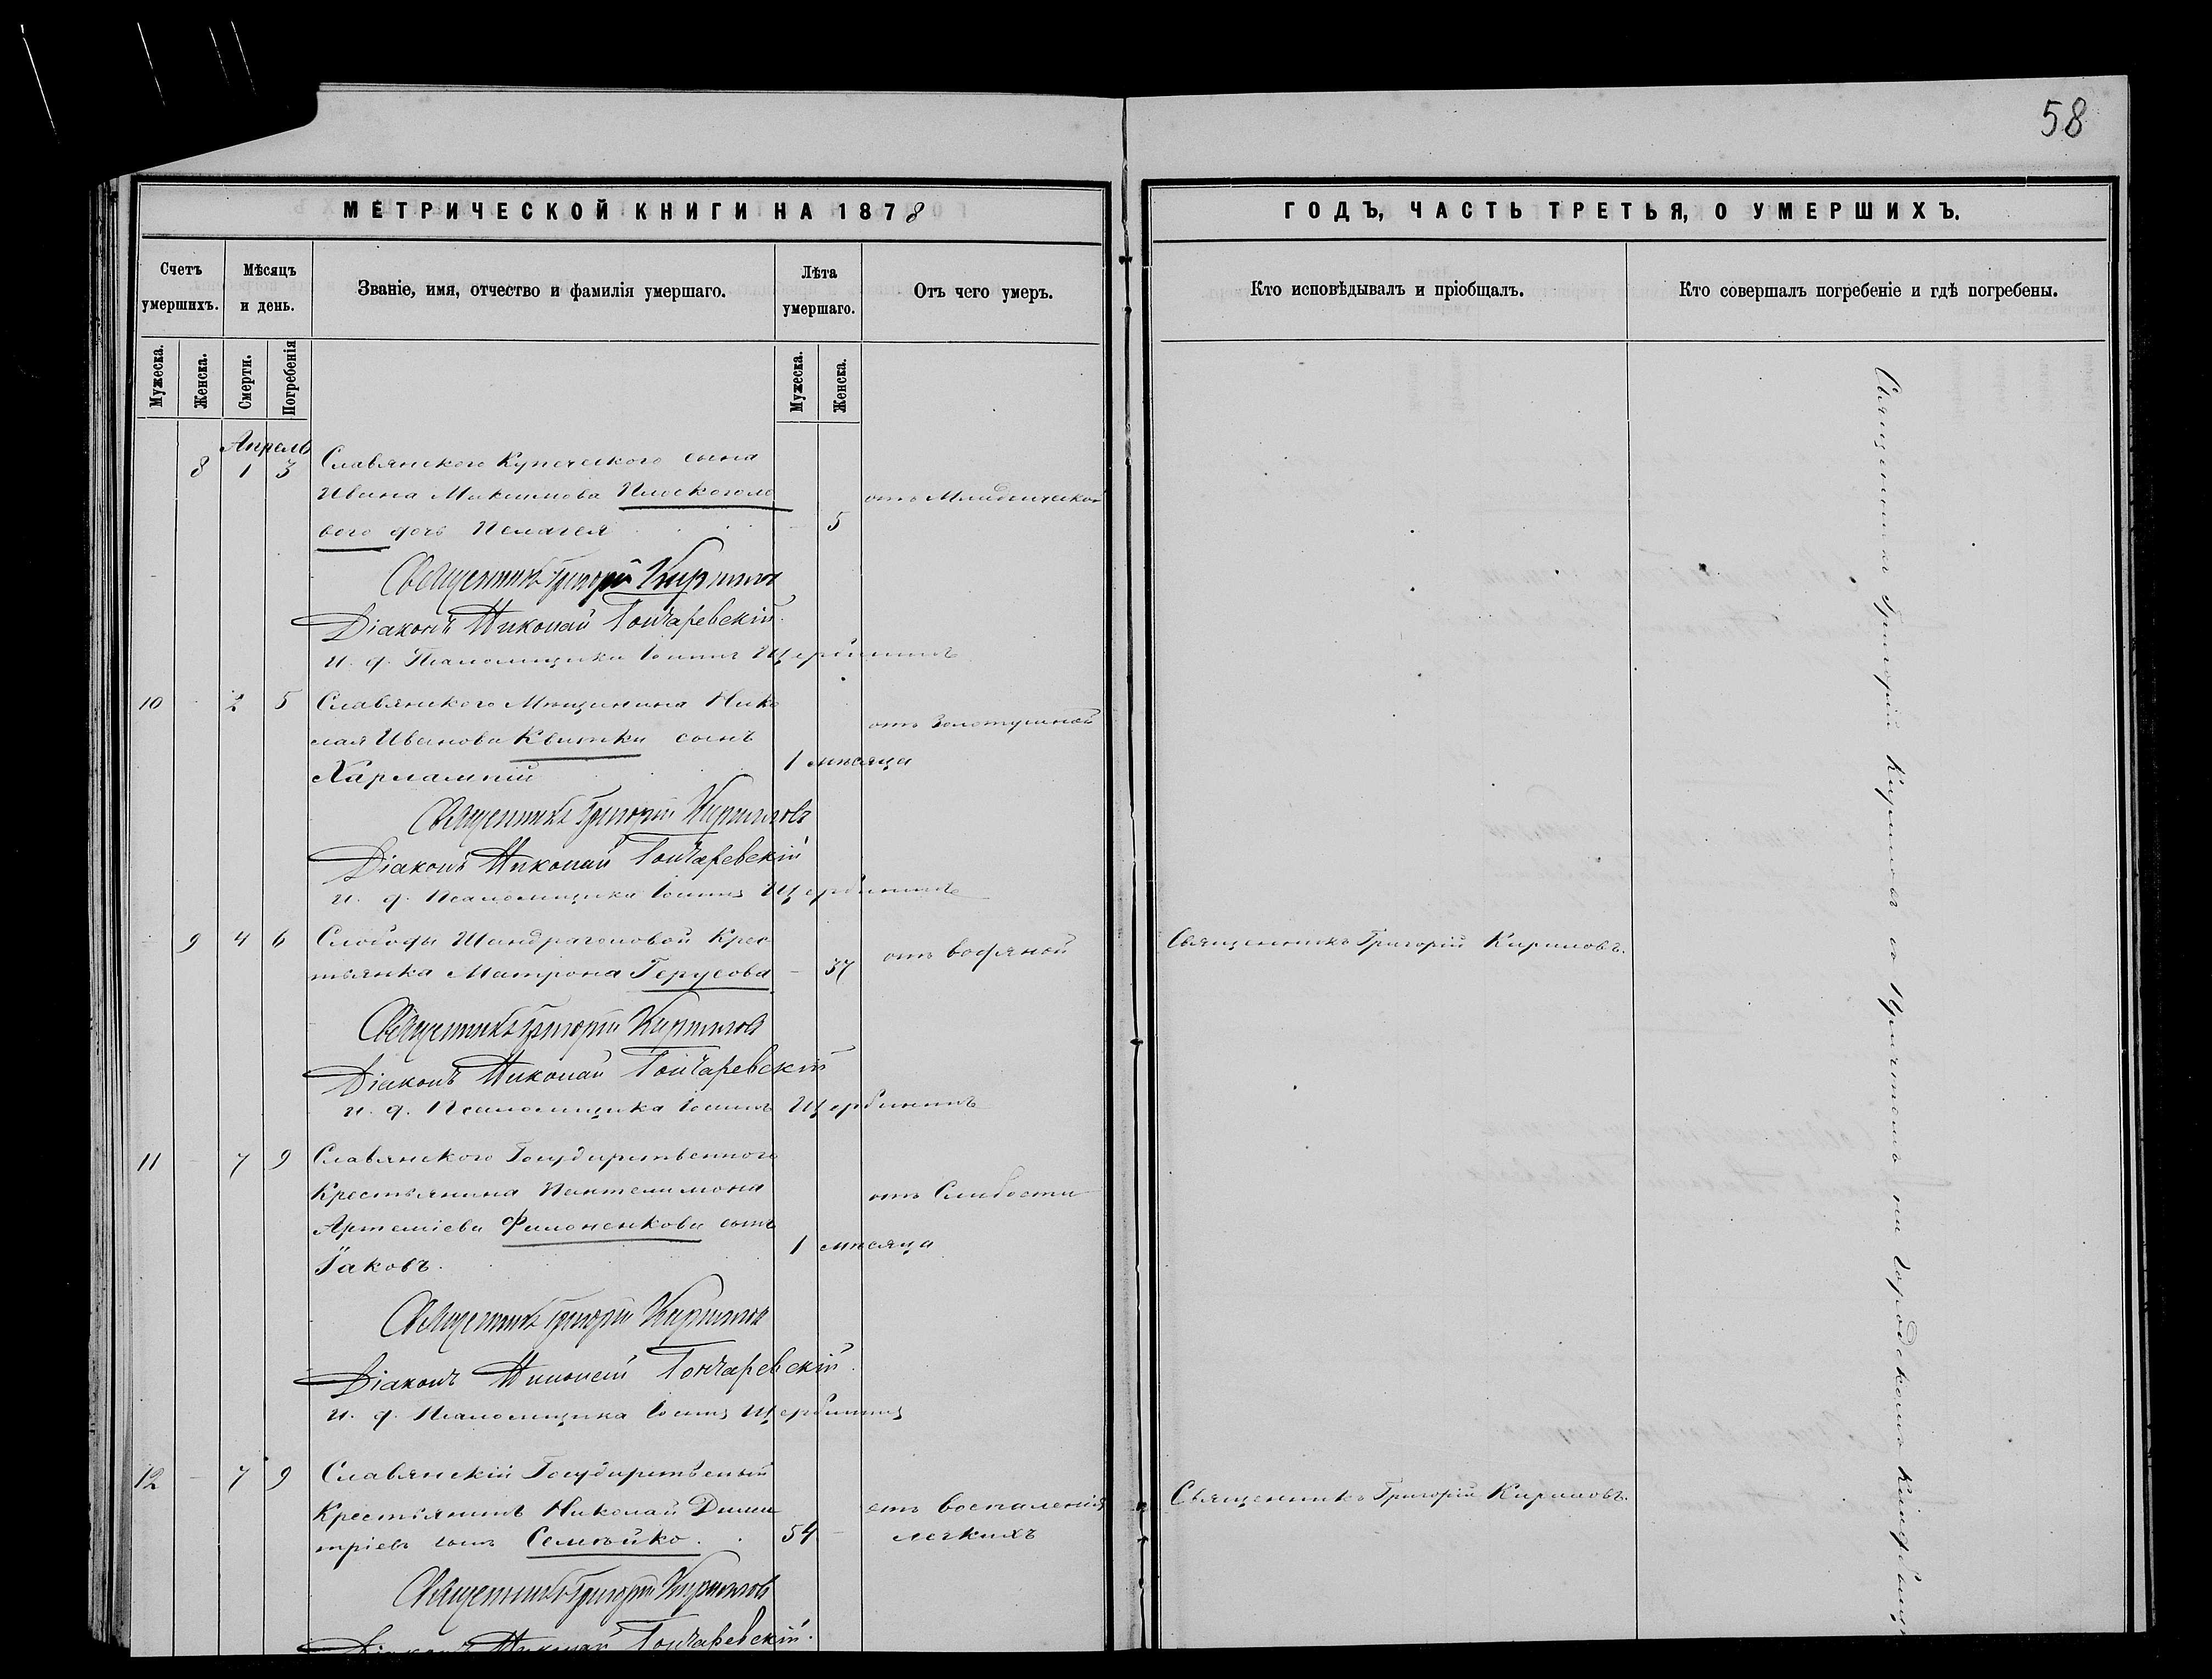 58
МЕТРИЧЕСКОЙ КНИГИ НА 1878
ГОДЪ, ЧАСТЬ ТРЕТЬЯ, О УМЕРШИХЪ.
Счетъ умершихъ.
Мѣсяцъ и день.
Званіе, имя, отчество и фамилія умершаго.
Лѣта умершаго.
Отъ чего умеръ.
Кто исповѣдывалъ и пріобщалъ.
Кто совершалъ погребеніе и гдѣ погребены.
Мужеска.
Женска.
Смерти.
Погребенія
Мужеска.
Женска.
Апрель
8 1 3 Славянского Купеческого сына
Ивана Максимова Плоскоголо
отъ Младенческой
вого дочь Пелагея 5
Священникъ Григорій Кириловъ
Діаконъ Николай Гончаревскій
и. д. Псаломщика Іоаннъ Щербининъ
10 2 5 Славянского Мѣщанина Нико
лая Иванова Квитки сынъ
отъ Золотушной
Харлампій 1 мѣсяца
Священникъ Григорій Кириловъ
Діаконъ Николай Гончаревскій
и. д. Псаломщика Іоаннъ Щербининъ
9 4 6 Слободы Шандраголовой Крес
тьянка Матрона Герусова - 37
отъ водяной
Священникъ Григорій Кириловъ.
Священникъ Григорій Кириловъ
Діаконъ Николай Гончаревскій
и. д. Псаломщика Іоаннъ Щербининъ
11 - 7 9 Славянского Государственного
Крестьянина Пантелимона
отъ Слабости
Артеміева Филоненкова сынъ
Іаковъ. 1 мѣсяца
Священникъ Григорій Кириловъ
Діаконъ Николай Гончаревскій
и. д. Псаломщика Іоаннъ Щербининъ
12 - 7 9 Славянскій Государственый
Крестьянинъ Николай Дими
отъ воспаленія
тріевъ сынъ Семѣйко. 54 -
легкихъ
Священникъ Григорій Кириловъ.
Священникъ Григорій Кириловъ
Діаконъ Николай Гончаревскій.
Священникъ Григорій Кириловъ съ Причтомъ на Городскомъ Кладбищѣ